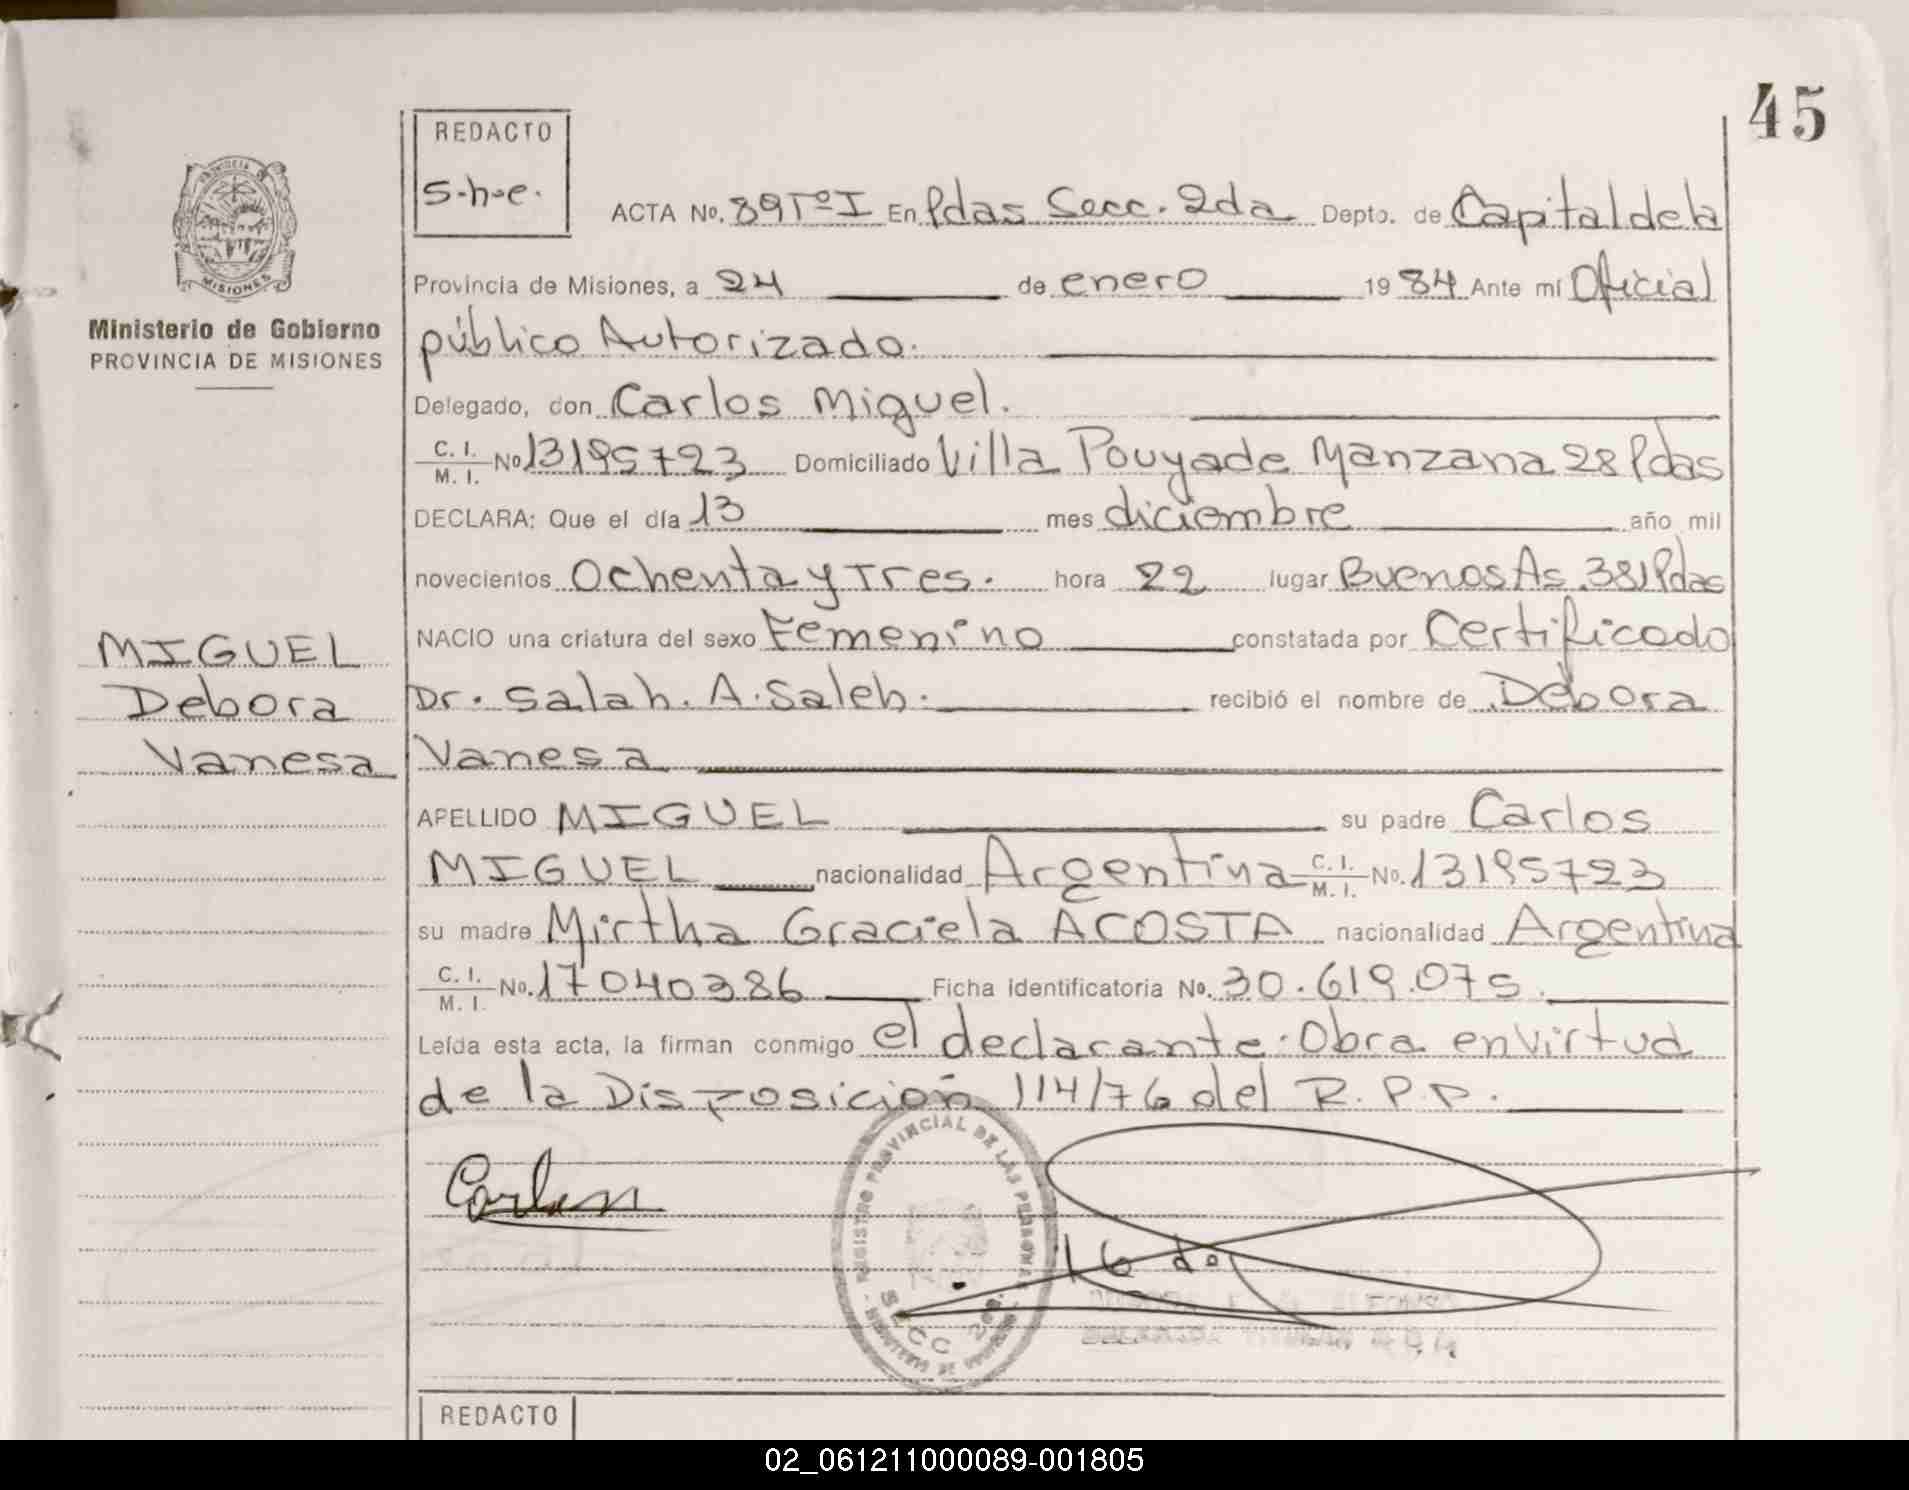 45
REDACTO
S.h.e.
ACTA No. 89 Tº I En Pdas Secc. 2da Depto. de Capital de la
Provincia de Misiones, a 24 de enero 1984 Ante mí Oficial
público Autorizado.
Delegado, don Carlos Miguel.
C. I. / M. I. No 13195723 Domiciliado Villa Pouyade Manzana 28 Pdas
DECLARA: Que el día 13 mes diciembre año mil
novecientos Ochenta y Tres. hora 22 lugar Buenos As. 381 Pdas
NACIO una criatura del sexo Femenino constatada por Certificado
Dr. Salah. A. Saleh. recibió el nombre de Debora
Vanesa
APELLIDO MIGUEL su padre Carlos
MIGUEL nacionalidad Argentina C. I. / M. I. No. 13195723
su madre Mirtha Graciela ACOSTA nacionalidad Argentina
C. I. / M. I. No. 17040386 Ficha Identificatoria No. 30.619.075.
Leída esta acta, la firman conmigo el declarante. Obra en virtud
de la Disposición 114/76 del R.P.P.
MISIONES
Ministerio de Gobierno
PROVINCIA DE MISIONES
MIGUEL
Debora
Vanesa
REGISTRO PROVINCIAL DE LAS PERSONAS
SECC 2da.
REDACTO
02_061211000089-001805